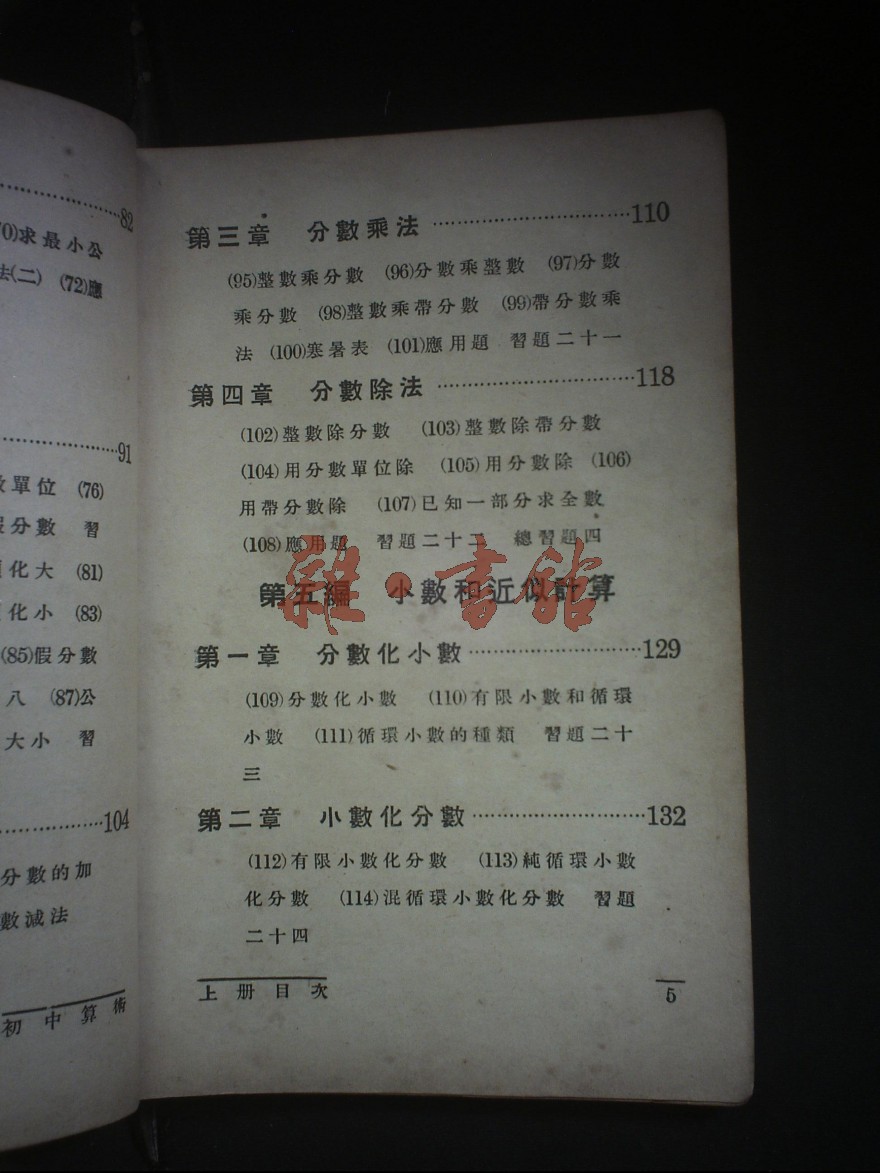 82
70)求最小公
法(二) (72)應
91
數單位 (76)
假分數 習
化大 (81)
化小 (83)
(85)假分數
八 (87)公
大小 習
104
分數的加
數減法
初中算術
第三章 分數乘法 110
(95)整數乘分數 (96)分數乘整數 (97)分數
乘分數 (98)整數乘帶分數 (99)帶分數乘
法 (100)寒暑表 (101)應用題 習題二十一
第四章 分數除法 118
(102)整數除分數 (103)整數除帶分數
(104)用分數單位除 (105)用分數除 (106)
用帶分數除 (107)已知一部分求全數
(108)應用題 習題二十二 總習題四
第五編 小數和近似計算
雜·書館
第一章 分數化小數 129
(109)分數化小數 (110)有限小數和循環
小數 (111)循環小數的種類 習題二十
三
第二章 小數化分數 132
(112)有限小數化分數 (113)純循環小數
化分數 (114)混循環小數化分數 習題
二十四
上册目次 5